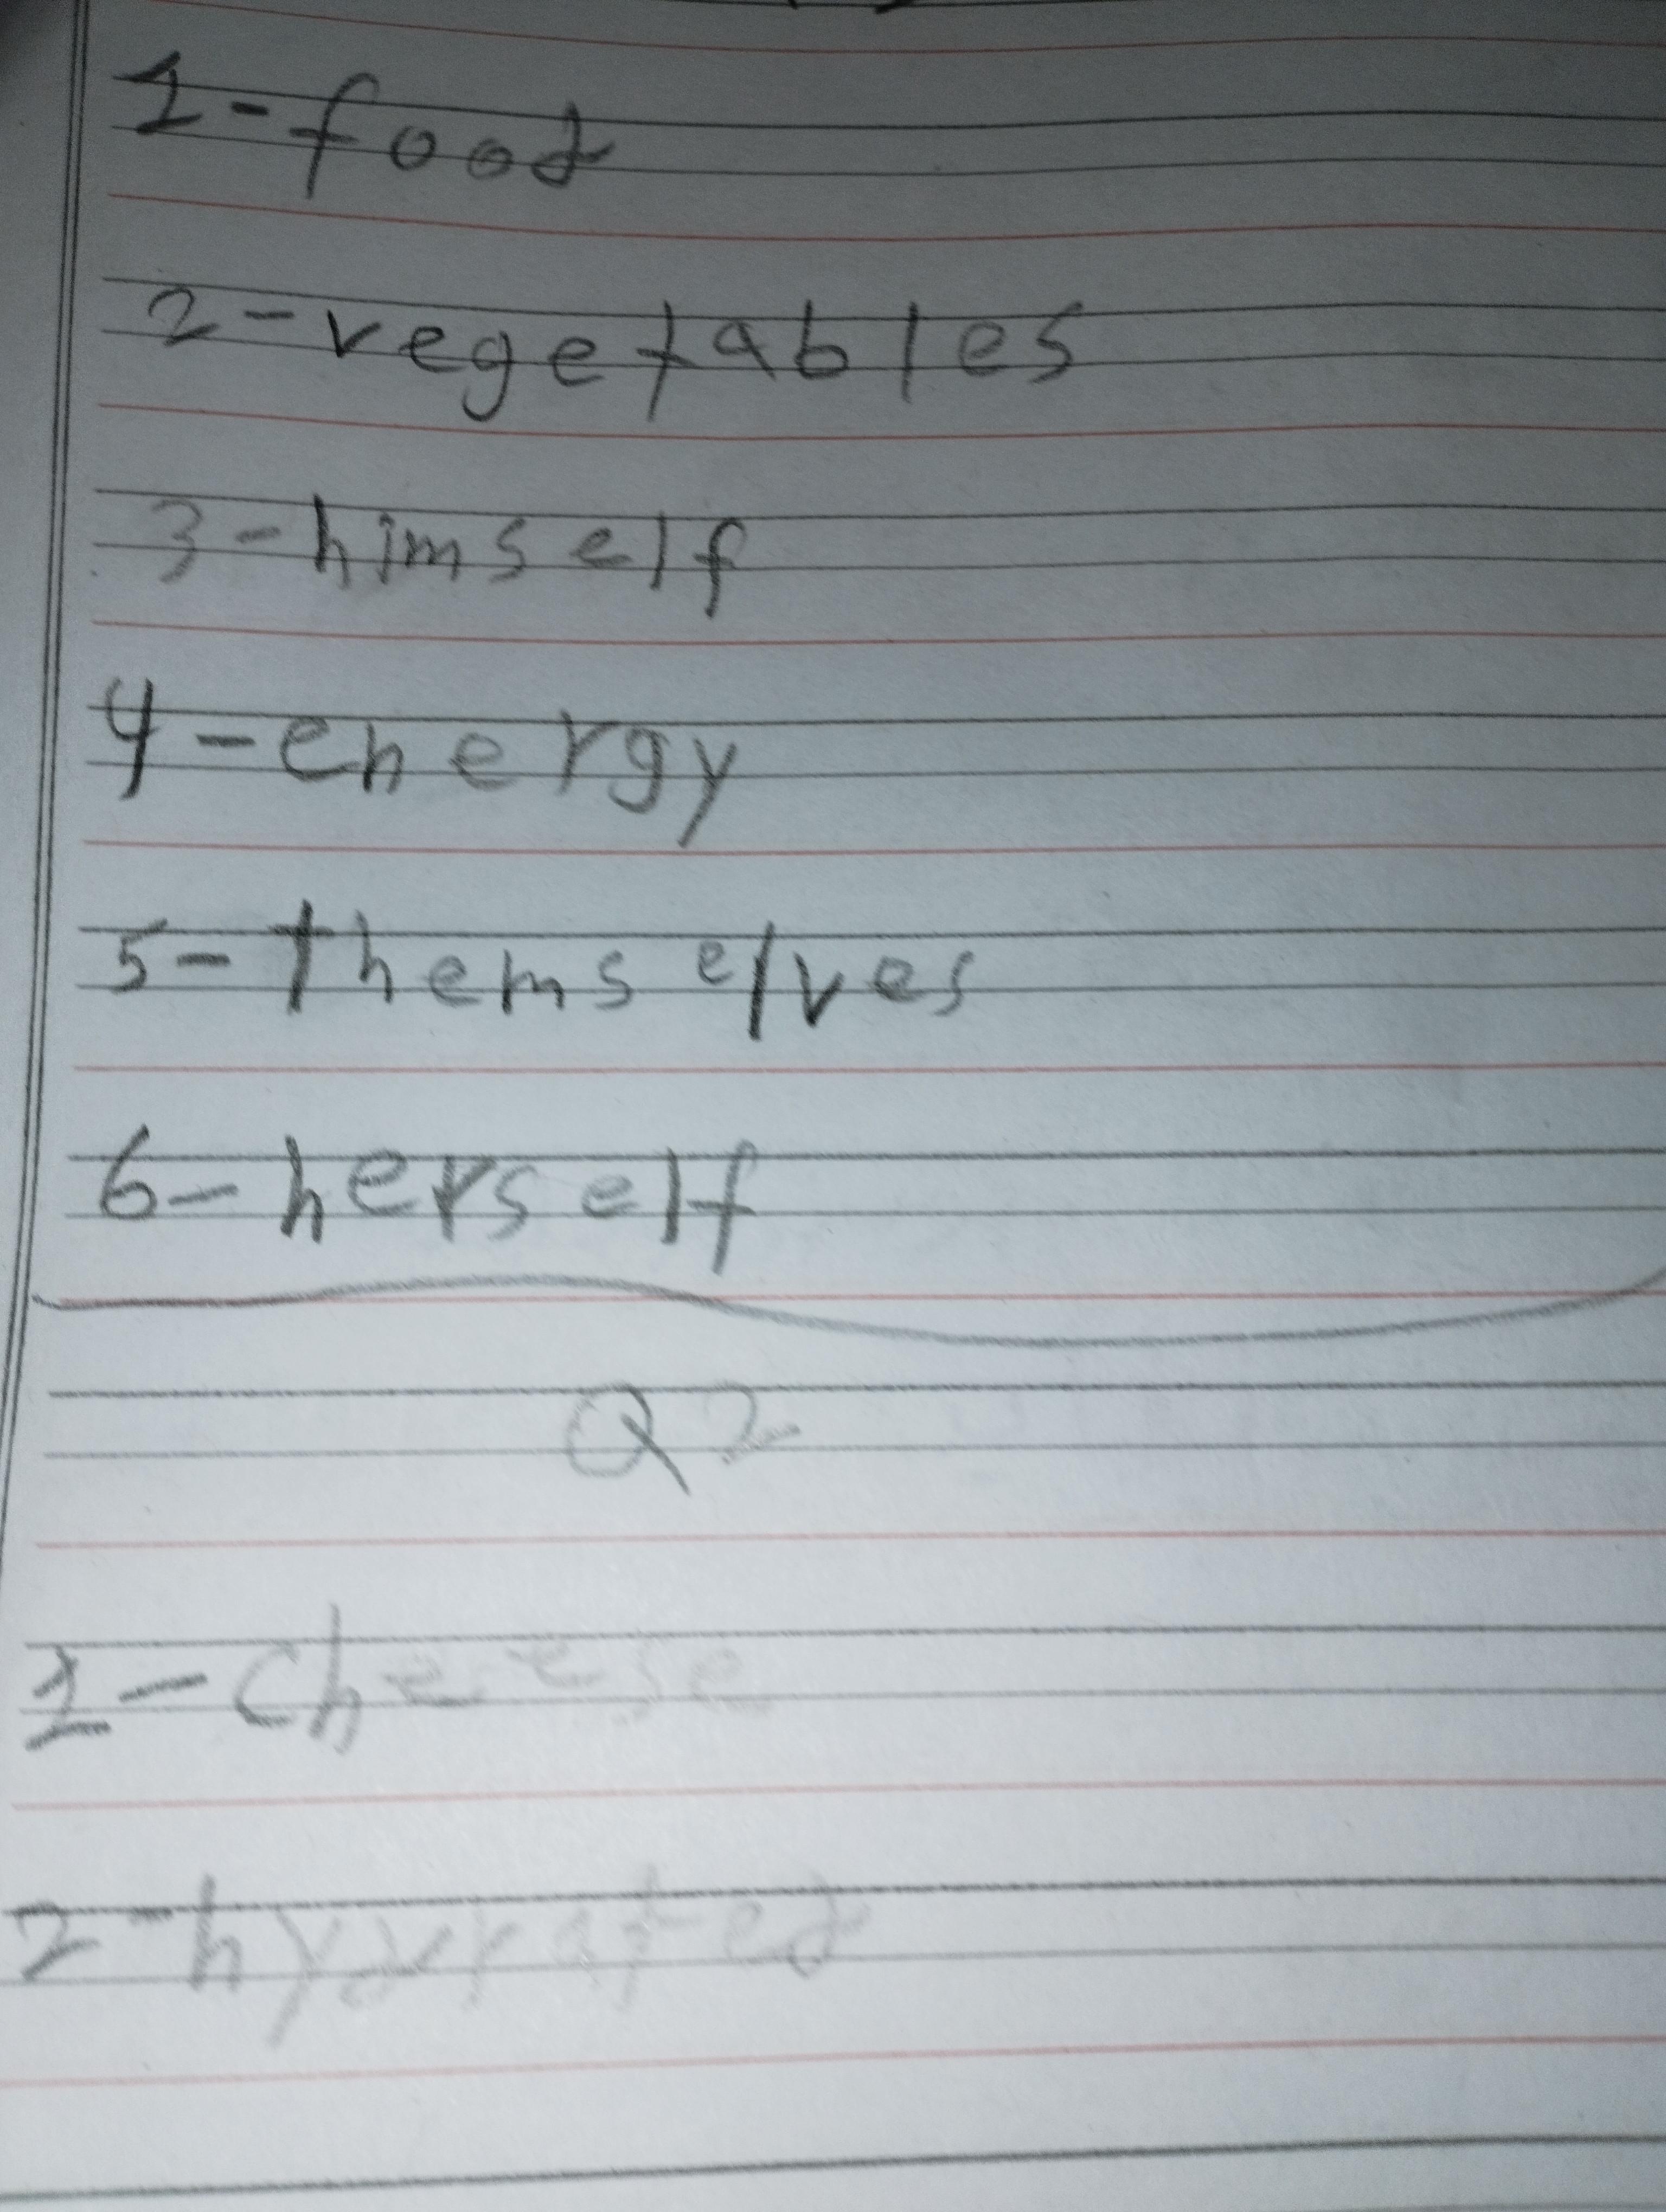 1-food
2-vegetables
3-himself
4-energy
5-themselves
6-herself
Q2
1-cheese
2-hydrated